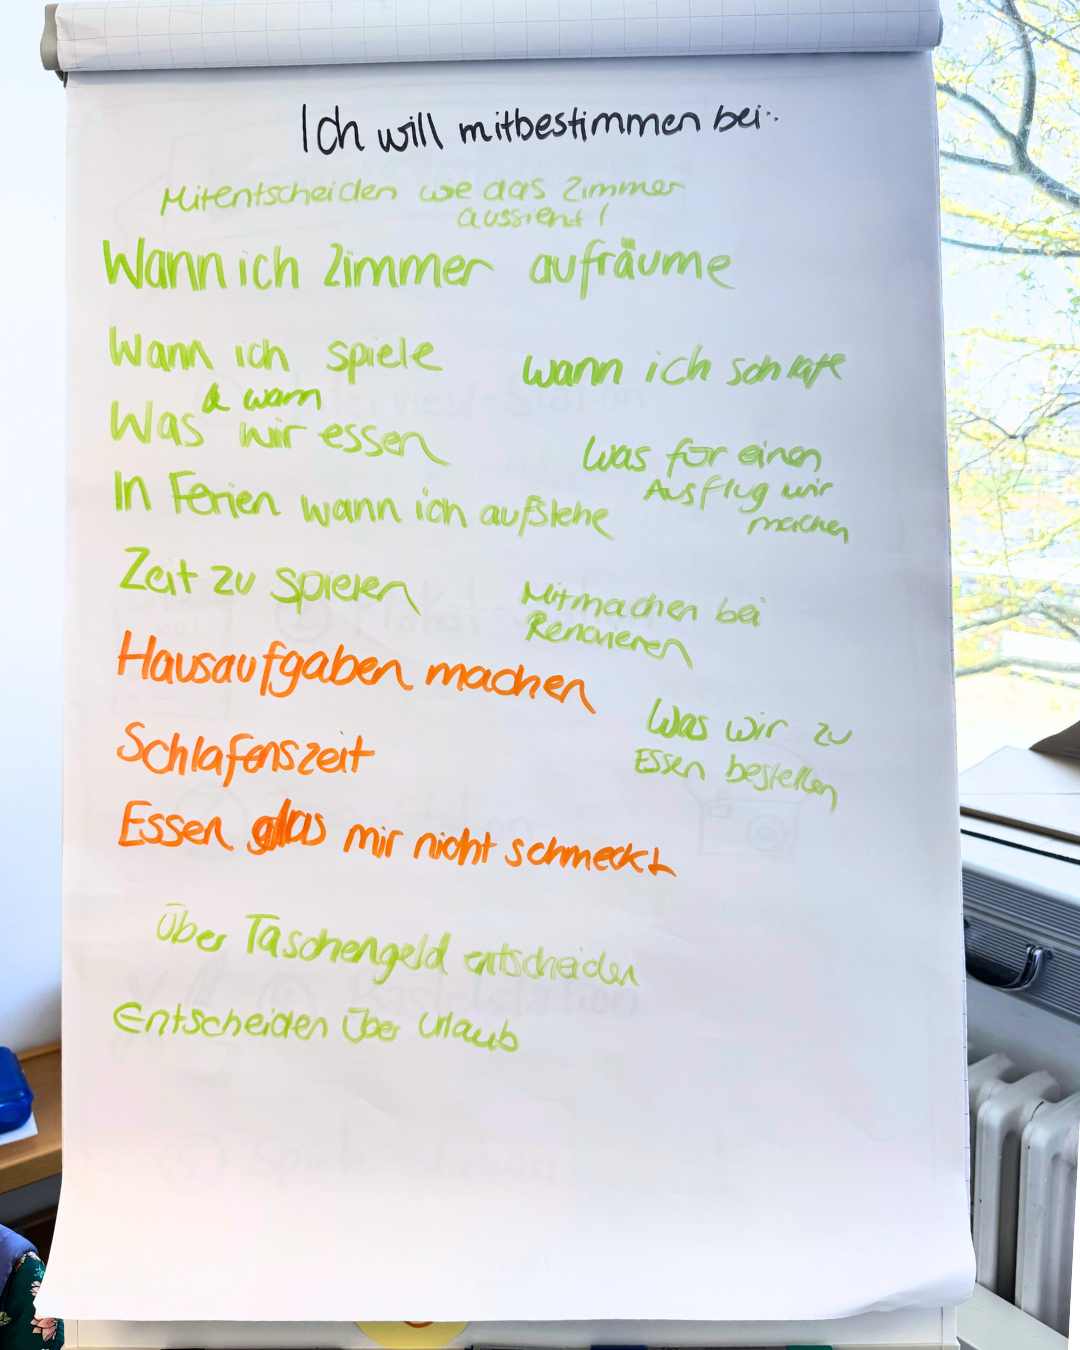 Ich will mitbestimmen bei:
Mitentscheiden wie das Zimmer
aussieht!
Wann ich Zimmer aufräume
Wann ich spiele
wann ich schlafe
& wann
Was wir essen
Was für einen
Ausflug wir
machen
In Ferien wann ich aufstehe
Zeit zu spielen
Mitmachen bei
Renovieren
Hausaufgaben machen
Was wir zu
Essen bestellen
Schlafenszeit
Essen das mir nicht schmeckt
Über Taschengeld entscheiden
Entscheiden über Urlaub